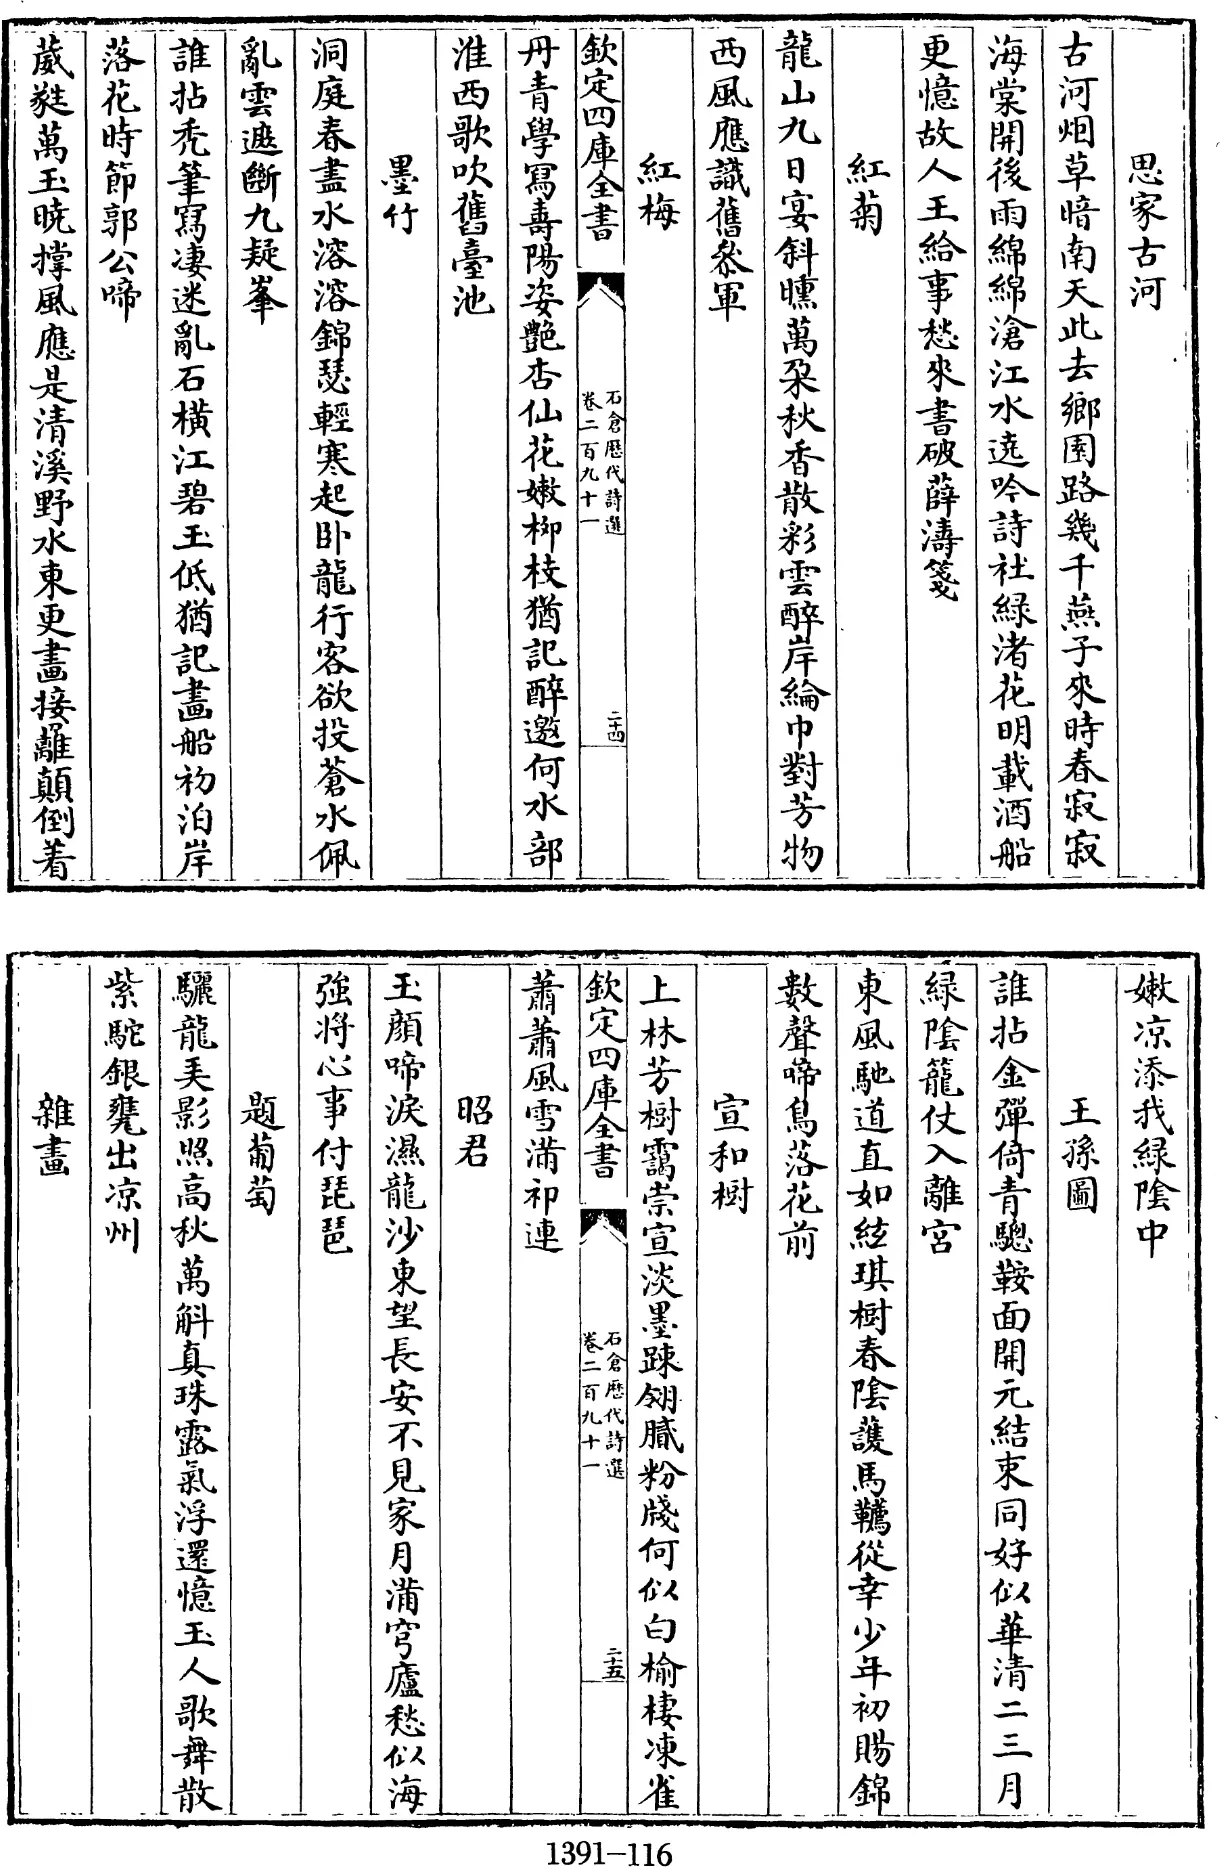 思家古河
古河烟草暗南天此去鄉園路幾千燕子來時春寂寂
海棠開後雨綿綿滄江水遶吟詩社綠渚花明載酒船
更憶故人王給事愁來書破薛濤箋
紅菊
龍山九日宴斜曛萬朶秋香散彩雲醉岸綸巾對芳物
西風應識舊叅軍
紅梅
欽定四庫全書
石倉歷代詩選
卷二百九十一
二十四
丹青學寫壽陽姿艷杏仙花嫩柳枝猶記醉邀何水部
淮西歌吹舊臺池
墨竹
洞庭春盡水溶溶錦瑟輕寒起卧龍行客欲投蒼水佩
亂雲遮斷九疑峯
誰拈秃筆寫凄迷亂石橫江碧玉低猶記畫船初泊岸
落花時節郭公啼
葳蕤萬玉曉撑風應是清溪野水東更畫接䍦顛倒着
嫩凉添我綠陰中
王孫圖
誰拈金彈倚青驄鞍面開元結束同好似華清二三月
綠陰籠仗入離宮
東風馳道直如絃琪樹春陰護馬韉從幸少年初賜錦
數聲啼鳥落花前
宣和樹
上林芳樹靄崇宣淡墨踈翎膩粉牋何似白榆棲凍雀
欽定四庫全書
石倉歷代詩選
卷二百九十一
二十五
蕭蕭風雪滿祁連
昭君
玉顔啼淚濕龍沙東望長安不見家月滿穹廬愁似海
強將心事付琵琶
題葡萄
驪龍羙影照高秋萬斛真珠露氣浮還憶玉人歌舞散
紫駝銀甕出凉州
雜畫
1391-116